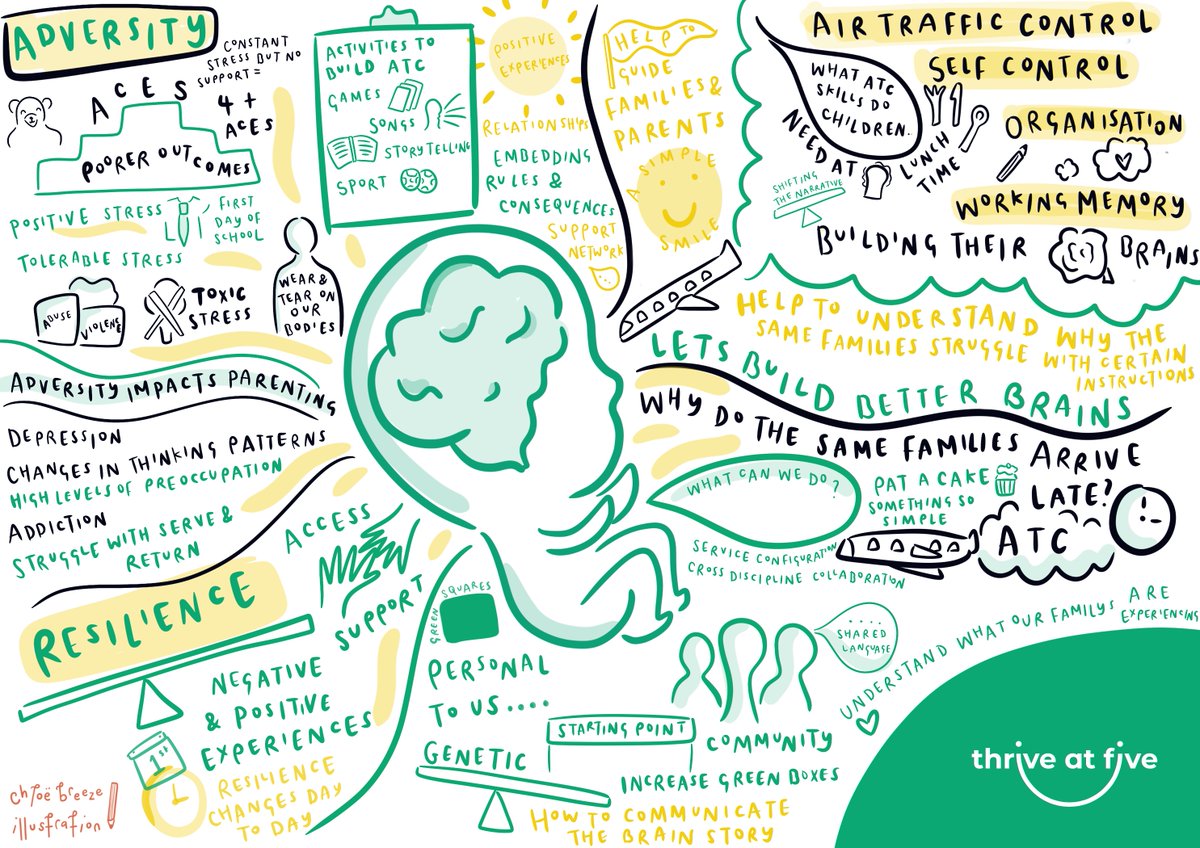 ADVERSITY
CONSTANT
STRESS BUT NO
SUPPORT =
4 +
ACES
ACES
POORER OUTCOMES
POSITIVE STRESS
FIRST
DAY OF
SCHOOL
TOLERABLE STRESS
ABUSE
VIOLENCE
TOXIC
STRESS
WEAR &
TEAR ON
OUR
BODIES
ADVERSITY IMPACTS PARENTING
DEPRESSION
CHANGES IN THINKING PATTERNS
HIGH LEVELS OF PREOCCUPATION
ADDICTION
STRUGGLE WITH SERVE &
RETURN
RESILIENCE
ACCESS
SUPPORT
NEGATIVE
& POSITIVE
EXPERIENCES
1st
RESILIENCE
CHANGES DAY
TO DAY
chloë breeze
illustration
ACTIVITIES TO
BUILD ATC
GAMES
SONGS
STORYTELLING
SPORT
POSITIVE
EXPERIENCES
RELATIONSHIPS
EMBEDDING
RULES &
CONSEQUENCES
SUPPORT
NETWORK
HELP TO
GUIDE
FAMILIES &
PARENTS
A SIMPLE
SMILE
AIR TRAFFIC CONTROL
SELF CONTROL
ORGANISATION
WORKING MEMORY
WHAT ATC
SKILLS DO
CHILDREN..
NEED AT
LUNCH
TIME
SHIFTING
THE NARRATIVE
BUILDING THEIR BRAINS
HELP TO UNDERSTAND WHY THE
SAME FAMILIES STRUGGLE WITH CERTAIN
INSTRUCTIONS
LETS BUILD BETTER BRAINS
WHY DO THE SAME FAMILIES ARRIVE
LATE?
WHAT CAN WE DO?
PAT A CAKE
SOMETHING SO
SIMPLE
ATC
SERVICE CONFIGURATION
CROSS DISCIPLINE COLLABORATION
GREEN SQUARES
PERSONAL
TO US....
GENETIC
STARTING POINT
COMMUNITY
SHARED
LANGUAGE
INCREASE GREEN BOXES
HOW TO COMMUNICATE
THE BRAIN STORY
UNDERSTAND WHAT OUR FAMILYS ARE
EXPERIENCING
thrive at five